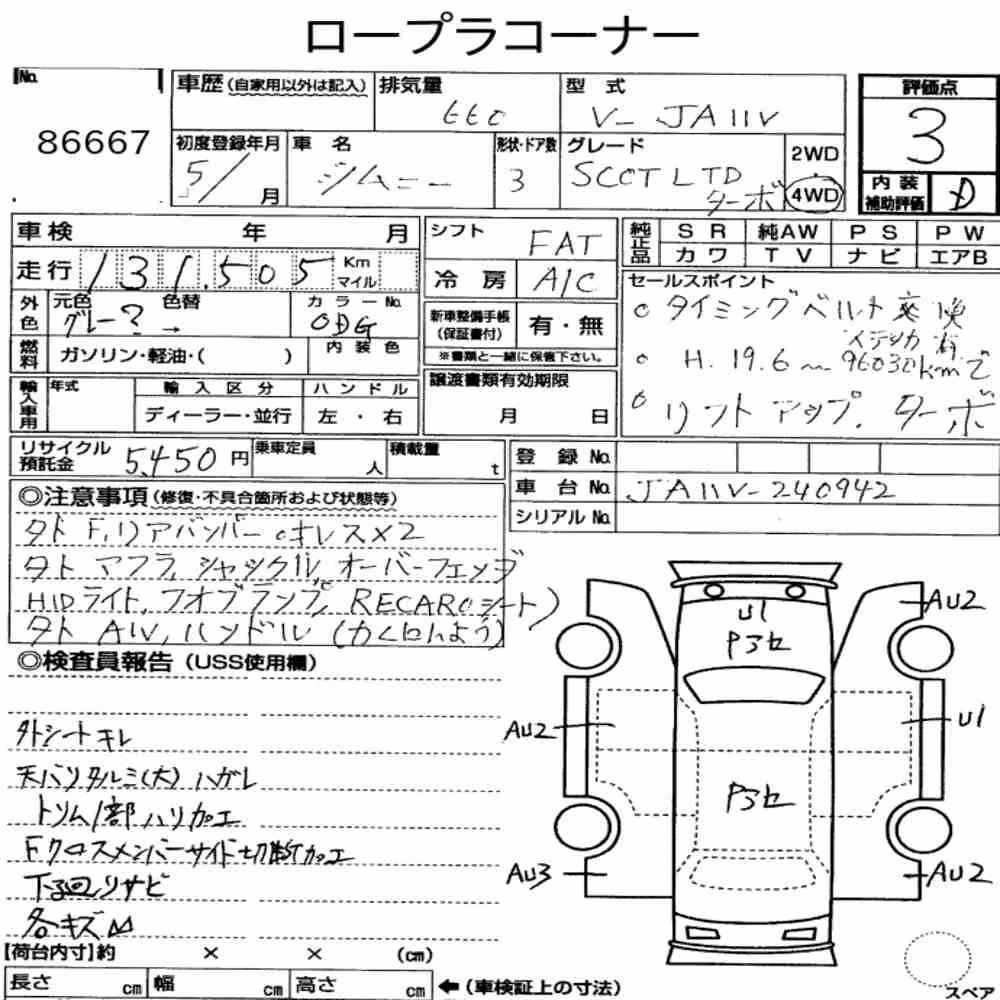 ロープラコーナー
No.
86667
車歴 (自家用以外は記入)
排気量
660
型式
V-JA11V
評価点
3
内装
補助評価
D
初度登録年月
5/
月
車名
ジムニー
形状・ドア数
3
グレード
SCOT LTD
ターボ
2WD
4WD
車検 年 月
走行 131,505 Km
マイル
外色
元色 色替
グレー? →
カラーNo.
0DG
燃料
ガソリン・軽油・( )
内装色
輸入車用
年式
輸入区分
ディーラー・並行
ハンドル
左・右
シフト
FAT
冷房
A/C
新車整備手帳
(保証書付)
有・無
※書類と一緒に保管下さい。
譲渡書類有効期限
月 日
純正品
SR 純AW PS PW
カワ TV ナビ エアB
セールスポイント
○ タイミングベルト交換
○ H.19.6 〜 96030kmで
○ リフトアップ、ターボ
リサイクル
預託金
5,450 円
乗車定員
人
積載量
t
登録No.
車台No.
JA11V-240942
シリアルNo.
◎注意事項 (修復・不具合箇所および状態等)
タト F,リアバンパー ホレスX2
タト マフラ,シャックル オーバーフェンダ
HIDライト,フオブランプ, RECAROシート)
タト AW,ハンドル (かくにんよう)
◎検査員報告 (USS使用欄)
外シートキレ
天バリタルミ(大) ハガレ
トリム1部ハリカエ
Fクロスメンバーサイド切断カエ
下回りサビ
各キズ
U1
Pアセ
Pアセ
AU2
AU2
U1
AU3
AU2
スペア
【荷台内寸】約 × × (cm)
長さ cm 幅 cm 高さ cm
←(車検証上の寸法)